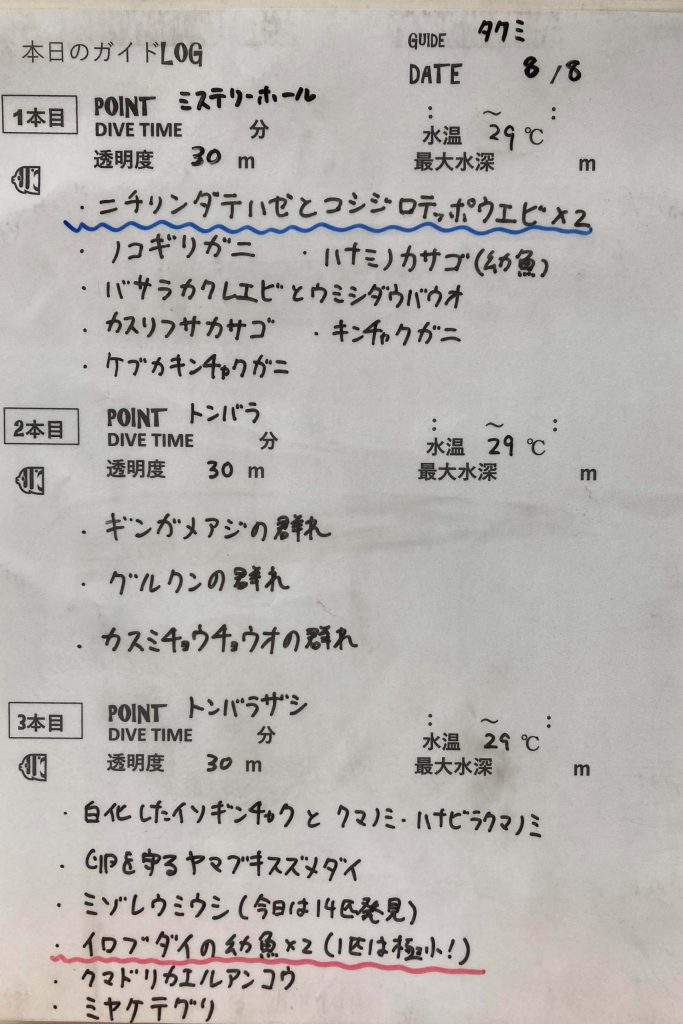 本日のガイドLOG
GUIDE タクミ
DATE 8/8
1本目 POINT ミステリーホール : 〜 :
DIVE TIME 分 水温 29℃
透明度 30 m 最大水深 m
・ニチリンダテハゼとコシジロテッポウエビ×2
・ノコギリガニ ・ハナミノカサゴ(幼魚)
・バサラカクレエビとウミシダウバウオ
・カスリフサカサゴ ・キンチャクガニ
・ケブカキンチャクガニ
2本目 POINT トンバラ : 〜 :
DIVE TIME 分 水温 29℃
透明度 30 m 最大水深 m
・ギンガメアジの群れ
・グルクンの群れ
・カスミチョウチョウオの群れ
3本目 POINT トンバラザシ : 〜 :
DIVE TIME 分 水温 29℃
透明度 30 m 最大水深 m
・白化したイソギンチャクと クマノミ・ハナビラクマノミ
・卵を守るヤマブキスズメダイ
・ミゾレウミウシ(今日は14匹発見)
・イロブダイの幼魚×2(1匹は極小!)
・クマドリカエルアンコウ
・ミヤケテグリ